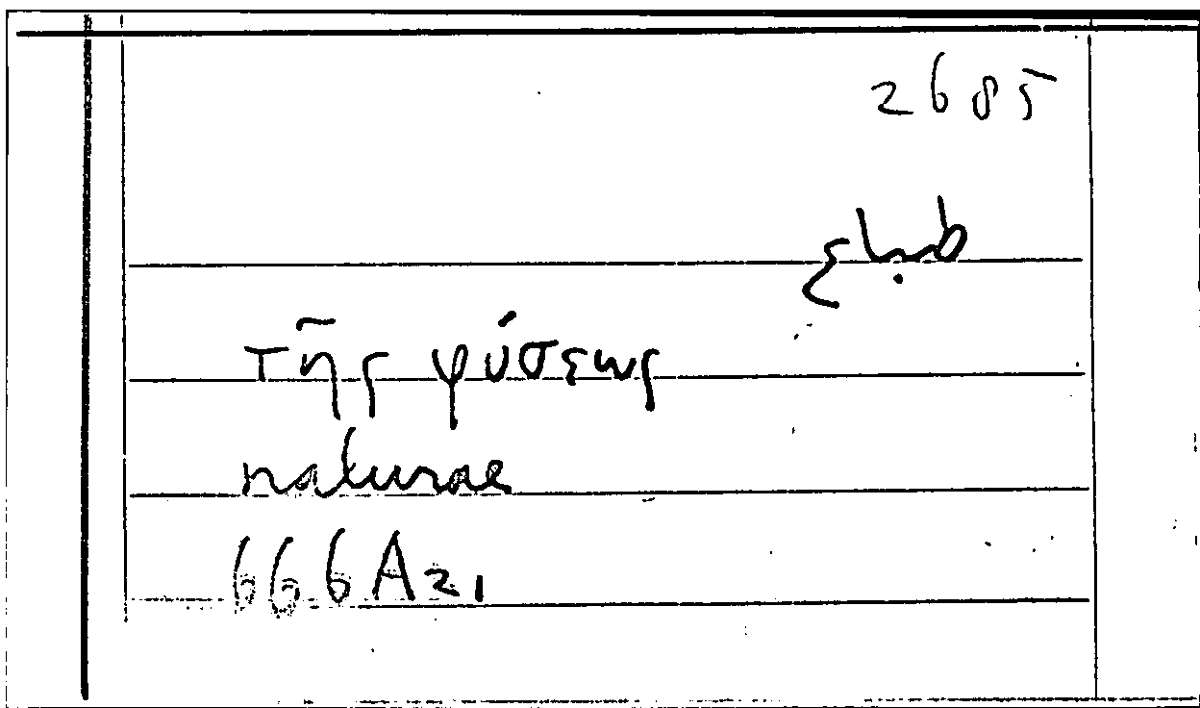 2685
طباع
τῆς φύσεως
naturae
666A21